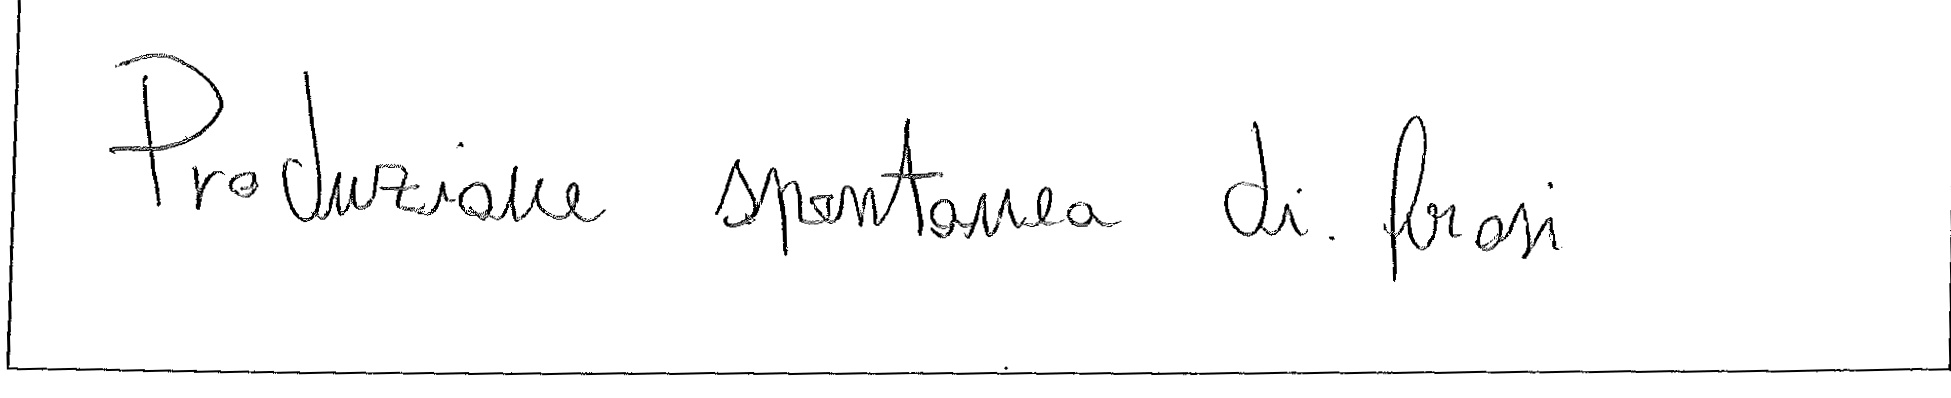 Produzione spontanea di. frasi